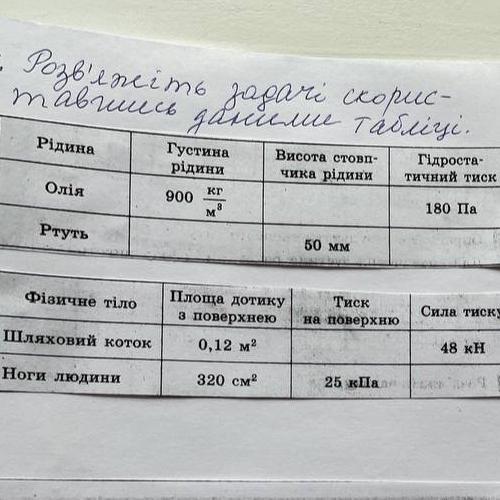 Розв'яжіть задачі скорис-
тавшись даними таблиці.
Рідина Густина рідини Висота стовп-чика рідини Гідроста-тичний тиск
Олія 900 кг/м³ 180 Па
Ртуть 50 мм
Фізичне тіло Площа дотику з поверхнею Тиск на поверхню Сила тиску
Шляховий коток 0,12 м² 48 кН
Ноги людини 320 см² 25 кПа